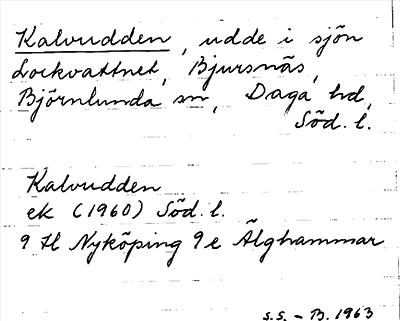 Kalvudden, udde i sjön
Lockvattnet, Bjursnäs,
Björnlunda sn, Daga hd,
Söd. l.
Kalvudden
ek (1960) Söd. l.
9 H Nyköping 9 e Älghammar
S.S. - B. 1963